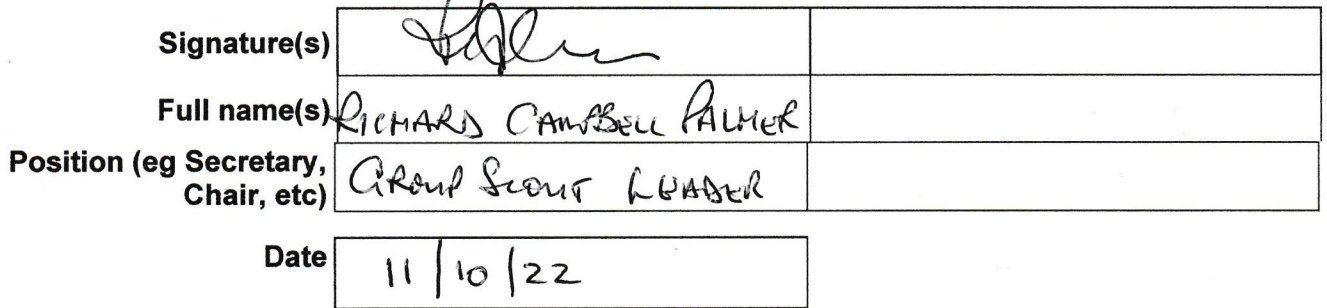 Signature(s)
Full name(s) RICHARD CAMPBELL PALMER
Position (eg Secretary, GROUP SCOUT LEADER
Chair, etc)
Date 11/10/22